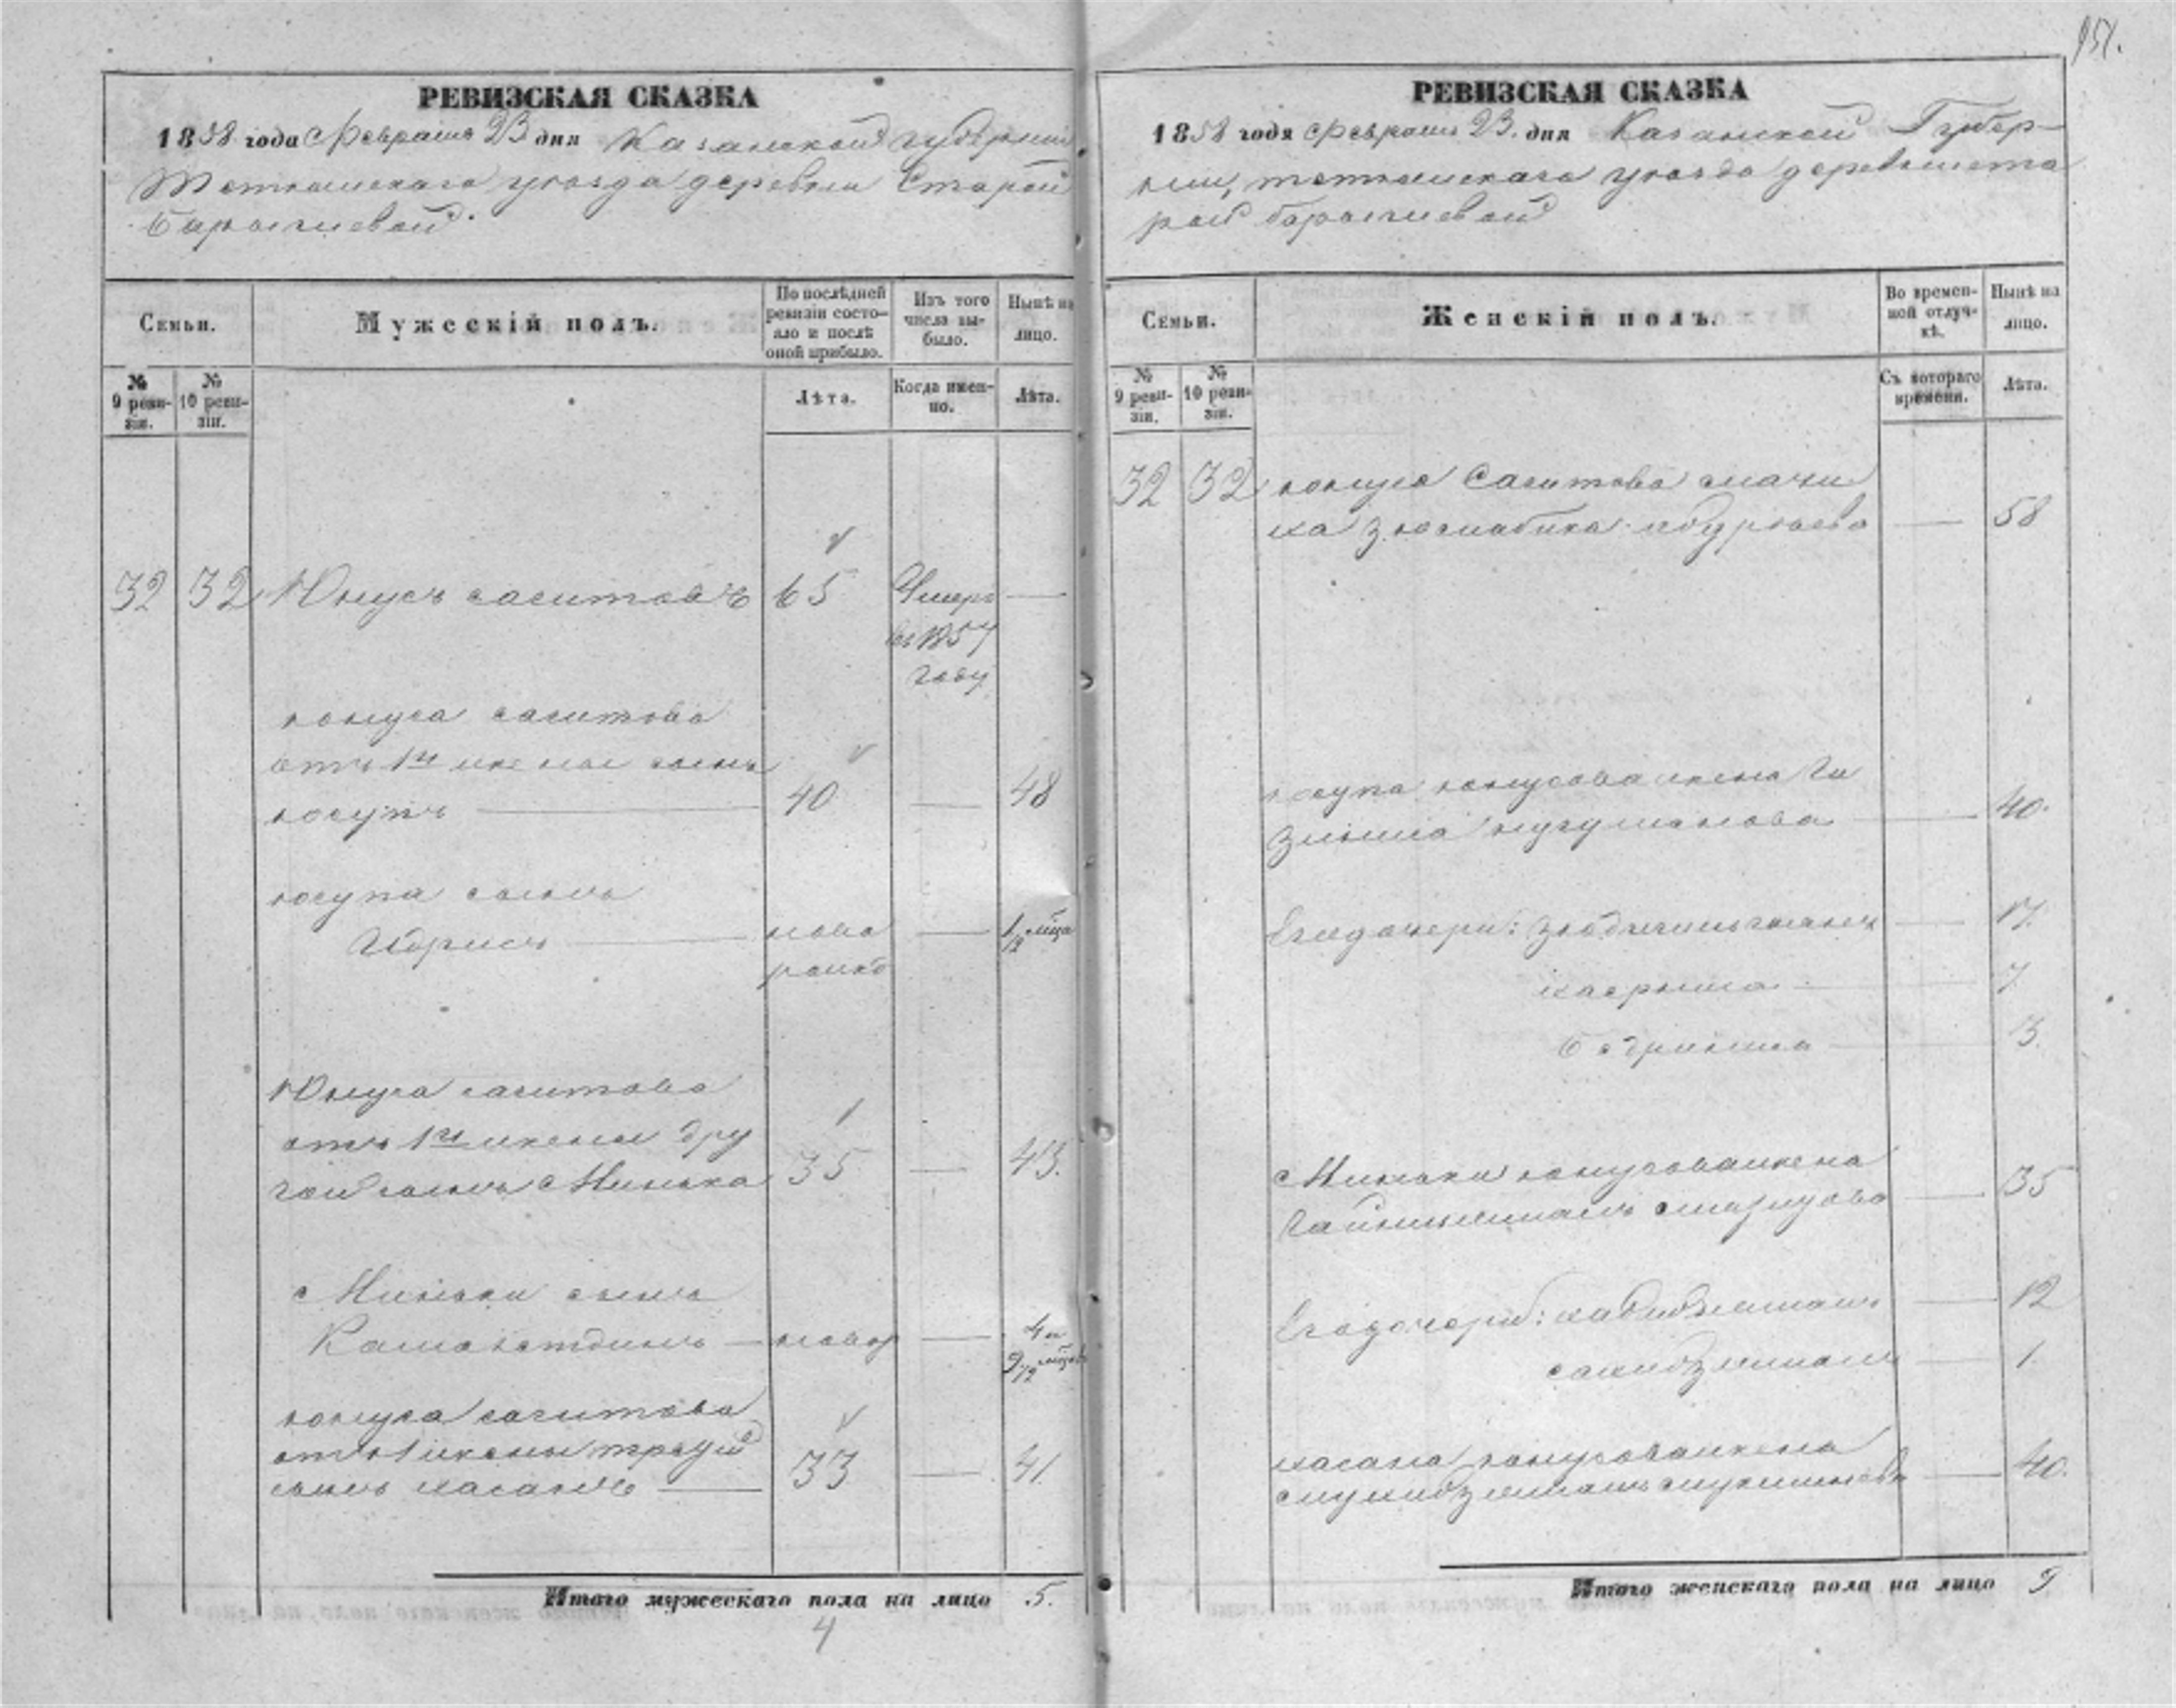 151.
РЕВИЗСКАЯ СКАЗКА
1858 года Февраля 23 дня Казанской губернии
Тетюшскаго уезда деревни Старой
Барышевой.
Семьи.
Мужескій полъ.
По послѣдней ревизіи состо-
яло и послѣ
оной прибыло.
Изъ того
числа вы-
было.
Нынѣ на
лицо.
№
9 реви-
зіи.
№
10 реви-
зіи.
Лѣта.
Когда имен-
но.
Лѣта.
32 32 Юнусъ сагитовъ 65 Умеръ —
въ 1857
году
юнуса сагитова
отъ 1й жены сынъ
юсупъ — 40 — 48
юсупа сынъ
Идрисъ — ново — 1/2 мѣца
рожд
Юнуса сагитова
отъ 1й жены дру
гой сынъ Минька 35 — 43.
Миньки сынъ
Камалетдинъ — новор — 4 и
9/12 мѣцов
юнуса сагитова
отъ 1 жены третий
сынъ хасанъ — 33 — 41.
Итого мужескаго пола на лицо 5.
4
РЕВИЗСКАЯ СКАЗКА
1858 года Февраля 23. дня Казанской Губер-
нии, тетюшскаго уезда деревни ста
рой барышевой
Семьи.
Женскій полъ.
Во времен-
ной отлуч-
кѣ.
Нынѣ на
лицо.
№
9 реви-
зіи.
№
10 реви-
зіи.
Съ котораго
времени.
Лѣта.
32 32 юнуса Сагитова мачи
ха — 58
юсупа юнусова жена
— 40.
Его дочери: — 17.
— 7
— 3.
Миньки юнусова жена
— 35
Его дочери: — 12
— 1.
хасана юнусова жена
— 40.
Итого женскаго пола на лицо 9